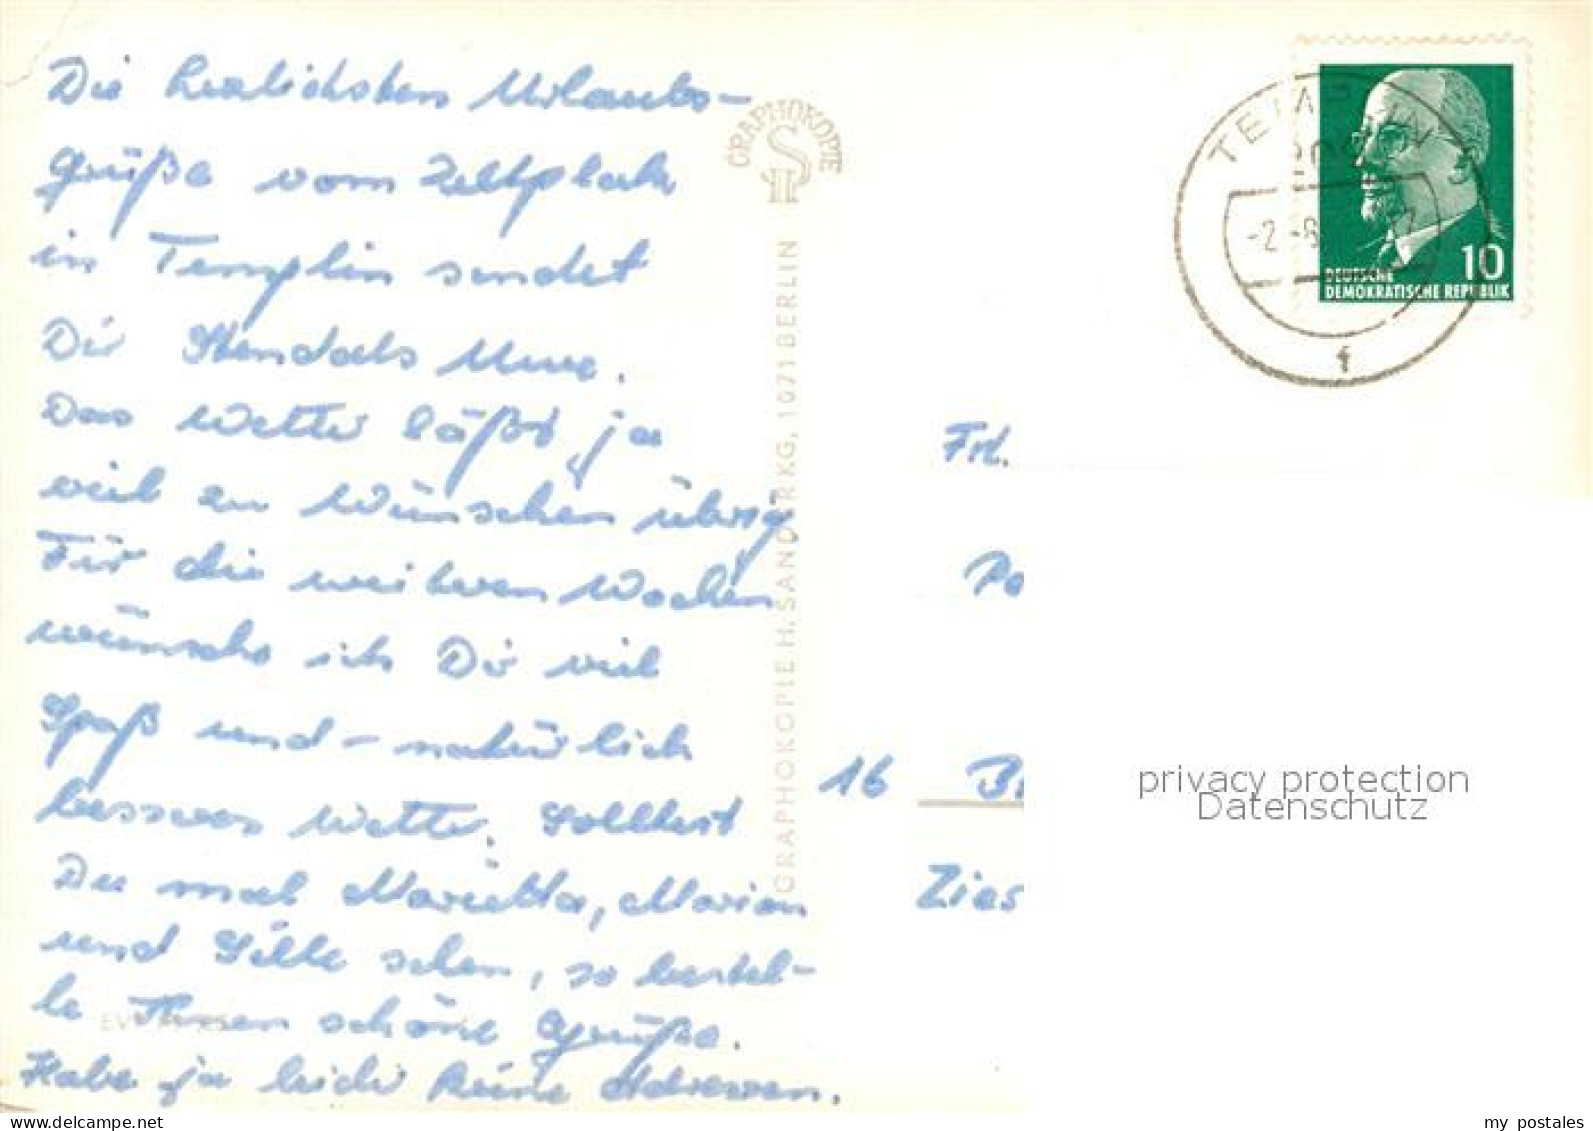 Die herzlichsten Urlaubs-
grüße vom Zeltplatz
in Templin sendet
Dir Stendals Uwe.
Das Wetter läßt ja
viel zu wünschen übrig.
Für die weiteren Wochen
wünsche ich Dir viel
Spaß und - natürlich
besseres Wetter. Solltest
Du mal Marietta, Marion
und Silke sehen, so bestel-
le Ihnen schöne Grüße.
Habe ja leider keine Adressen.
GRAPHOKOPIE
GRAPHOKOPIE H. SANDER KG, 1071 BERLIN
TEMPLIN
-2.-8
f
10
DEUTSCHE
DEMOKRATISCHE REPUBLIK
Frl.
Pa
16 B
Zies
privacy protection
Datenschutz
my postales